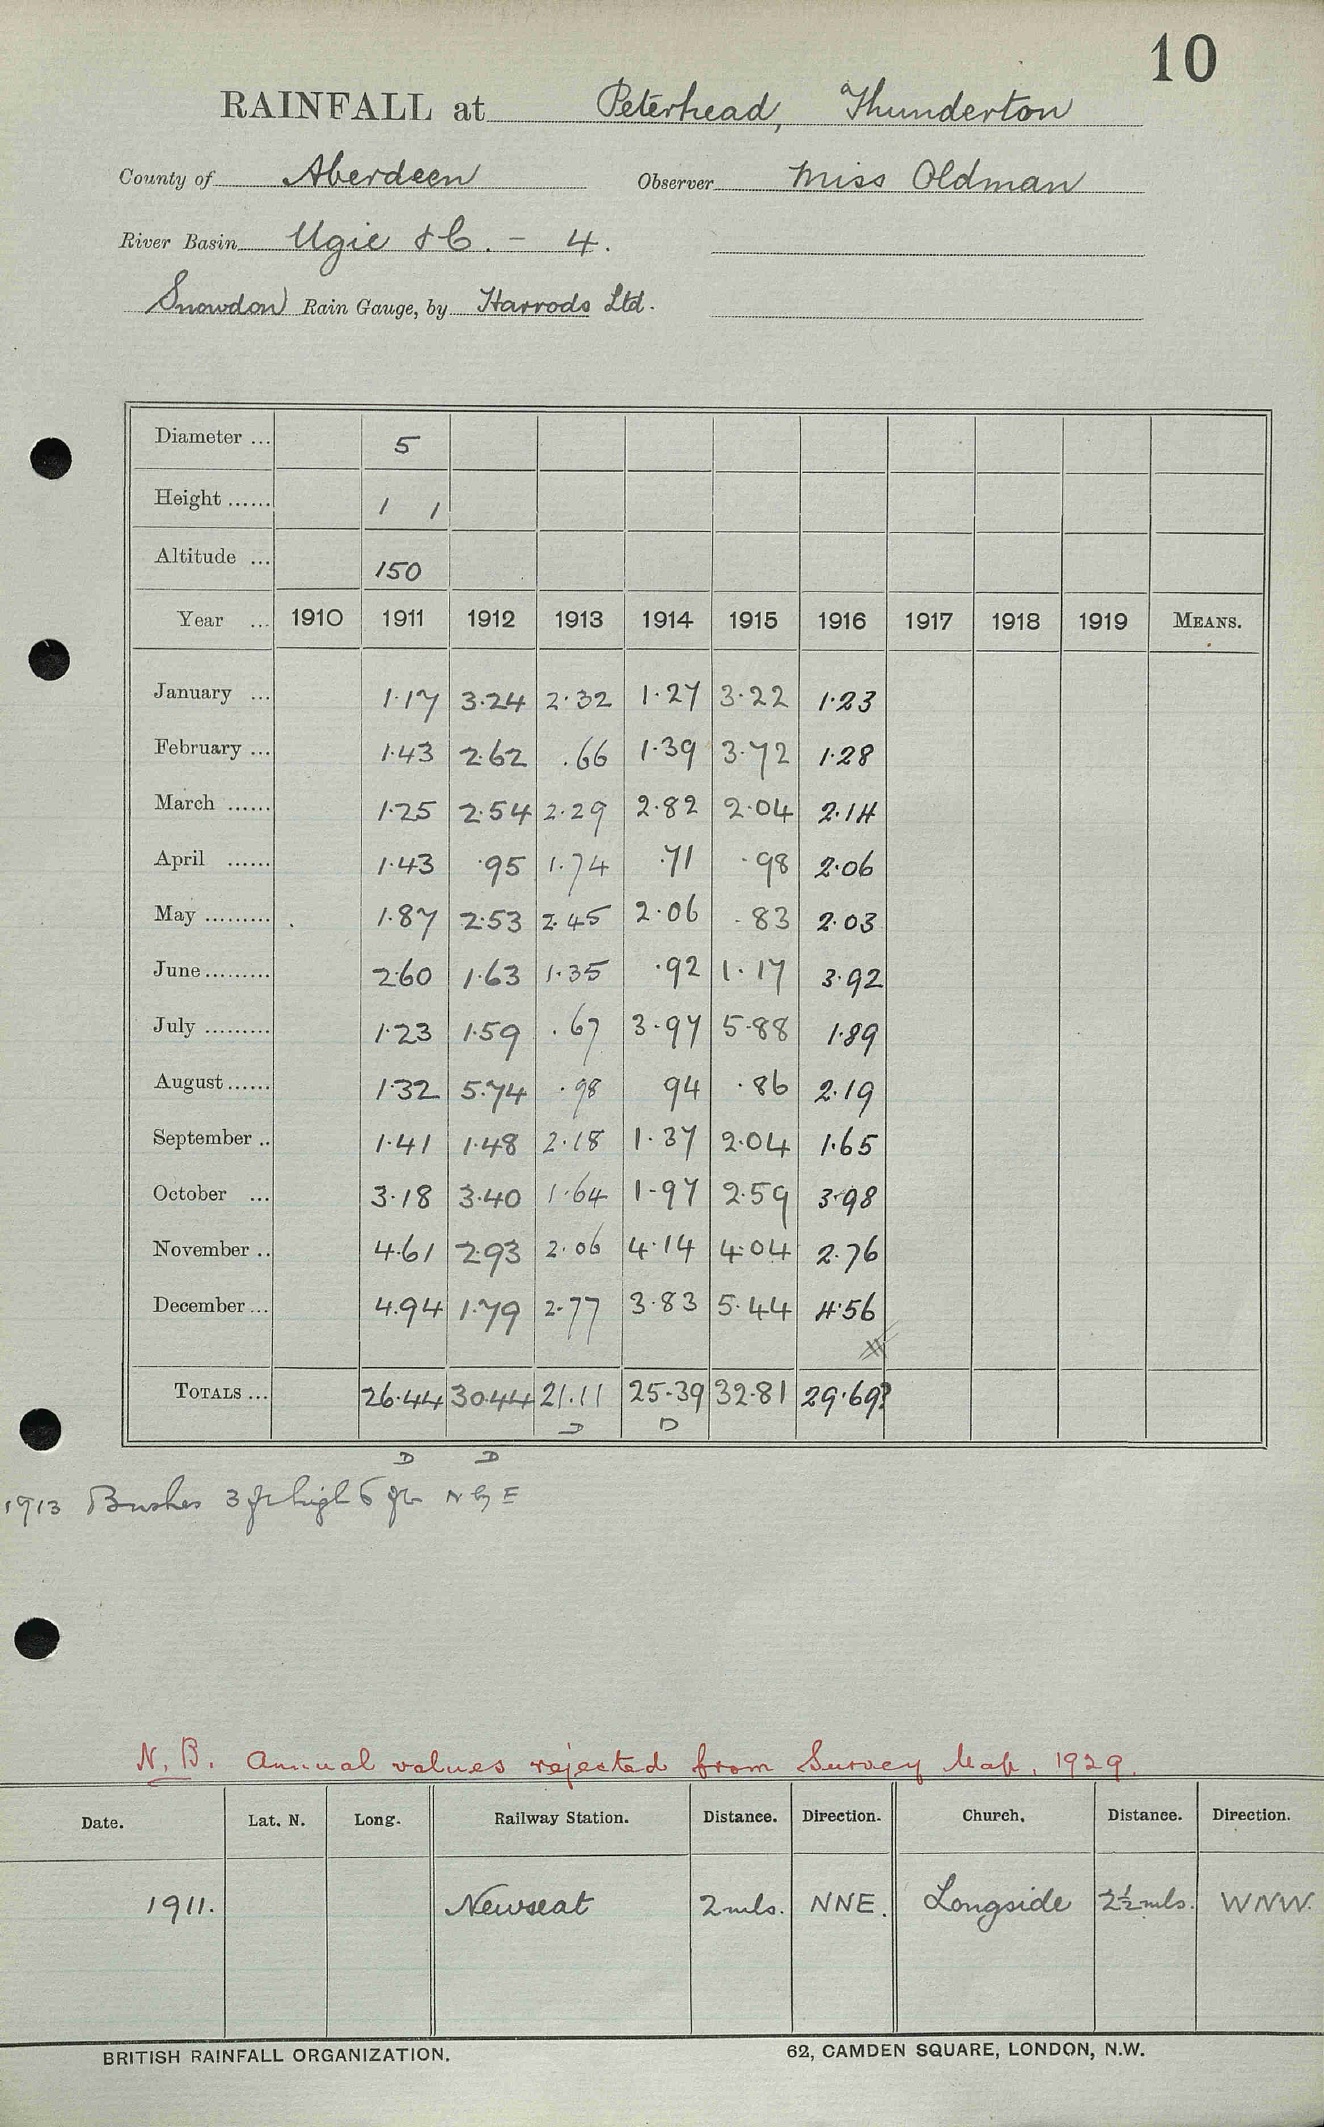 10
RAINFALL at Peterhead, Thunderton
County of Aberdeen Observer Miss Oldman
River Basin Ugie &C. - 4.
Snowdon Rain Gauge, by Harrods Ltd.
Diameter ... 5
Height ...... 1 1
Altitude ... 150
Year ... 1910 1911 1912 1913 1914 1915 1916 1917 1918 1919 MEANS.
January ... 1.17 3.24 2.32 1.27 3.22 1.23
February ... 1.43 2.62 .66 1.39 3.72 1.28
March ...... 1.25 2.54 2.29 2.82 2.04 2.14
April ...... 1.43 .95 1.74 .71 .98 2.06
May ......... 1.87 2.53 2.45 2.06 .83 2.03
June ......... 2.60 1.63 1.35 .92 1.17 3.92
July ......... 1.23 1.59 .67 3.97 5.88 1.89
August ...... 1.32 5.74 .98 94 .86 2.19
September .. 1.41 1.48 2.18 1.37 2.04 1.65
October ... 3.18 3.40 1.64 1.97 2.59 3.98
November .. 4.61 2.93 2.06 4.14 4.04 2.76
December ... 4.94 1.79 2.77 3.83 5.44 4.56
TOTALS ... 26.44 30.44 21.11 25.39 32.81 29.69?
D D
D D
1913 Bushes 3 ft high 6 ft N by E
N.B. Annual values rejected from Survey Map, 1929.
Date. Lat. N. Long. Railway Station. Distance. Direction. Church. Distance. Direction.
1911. Newseat 2 mls. NNE. Longside 2½ mls. WNW.
BRITISH RAINFALL ORGANIZATION. 62, CAMDEN SQUARE, LONDON, N.W.